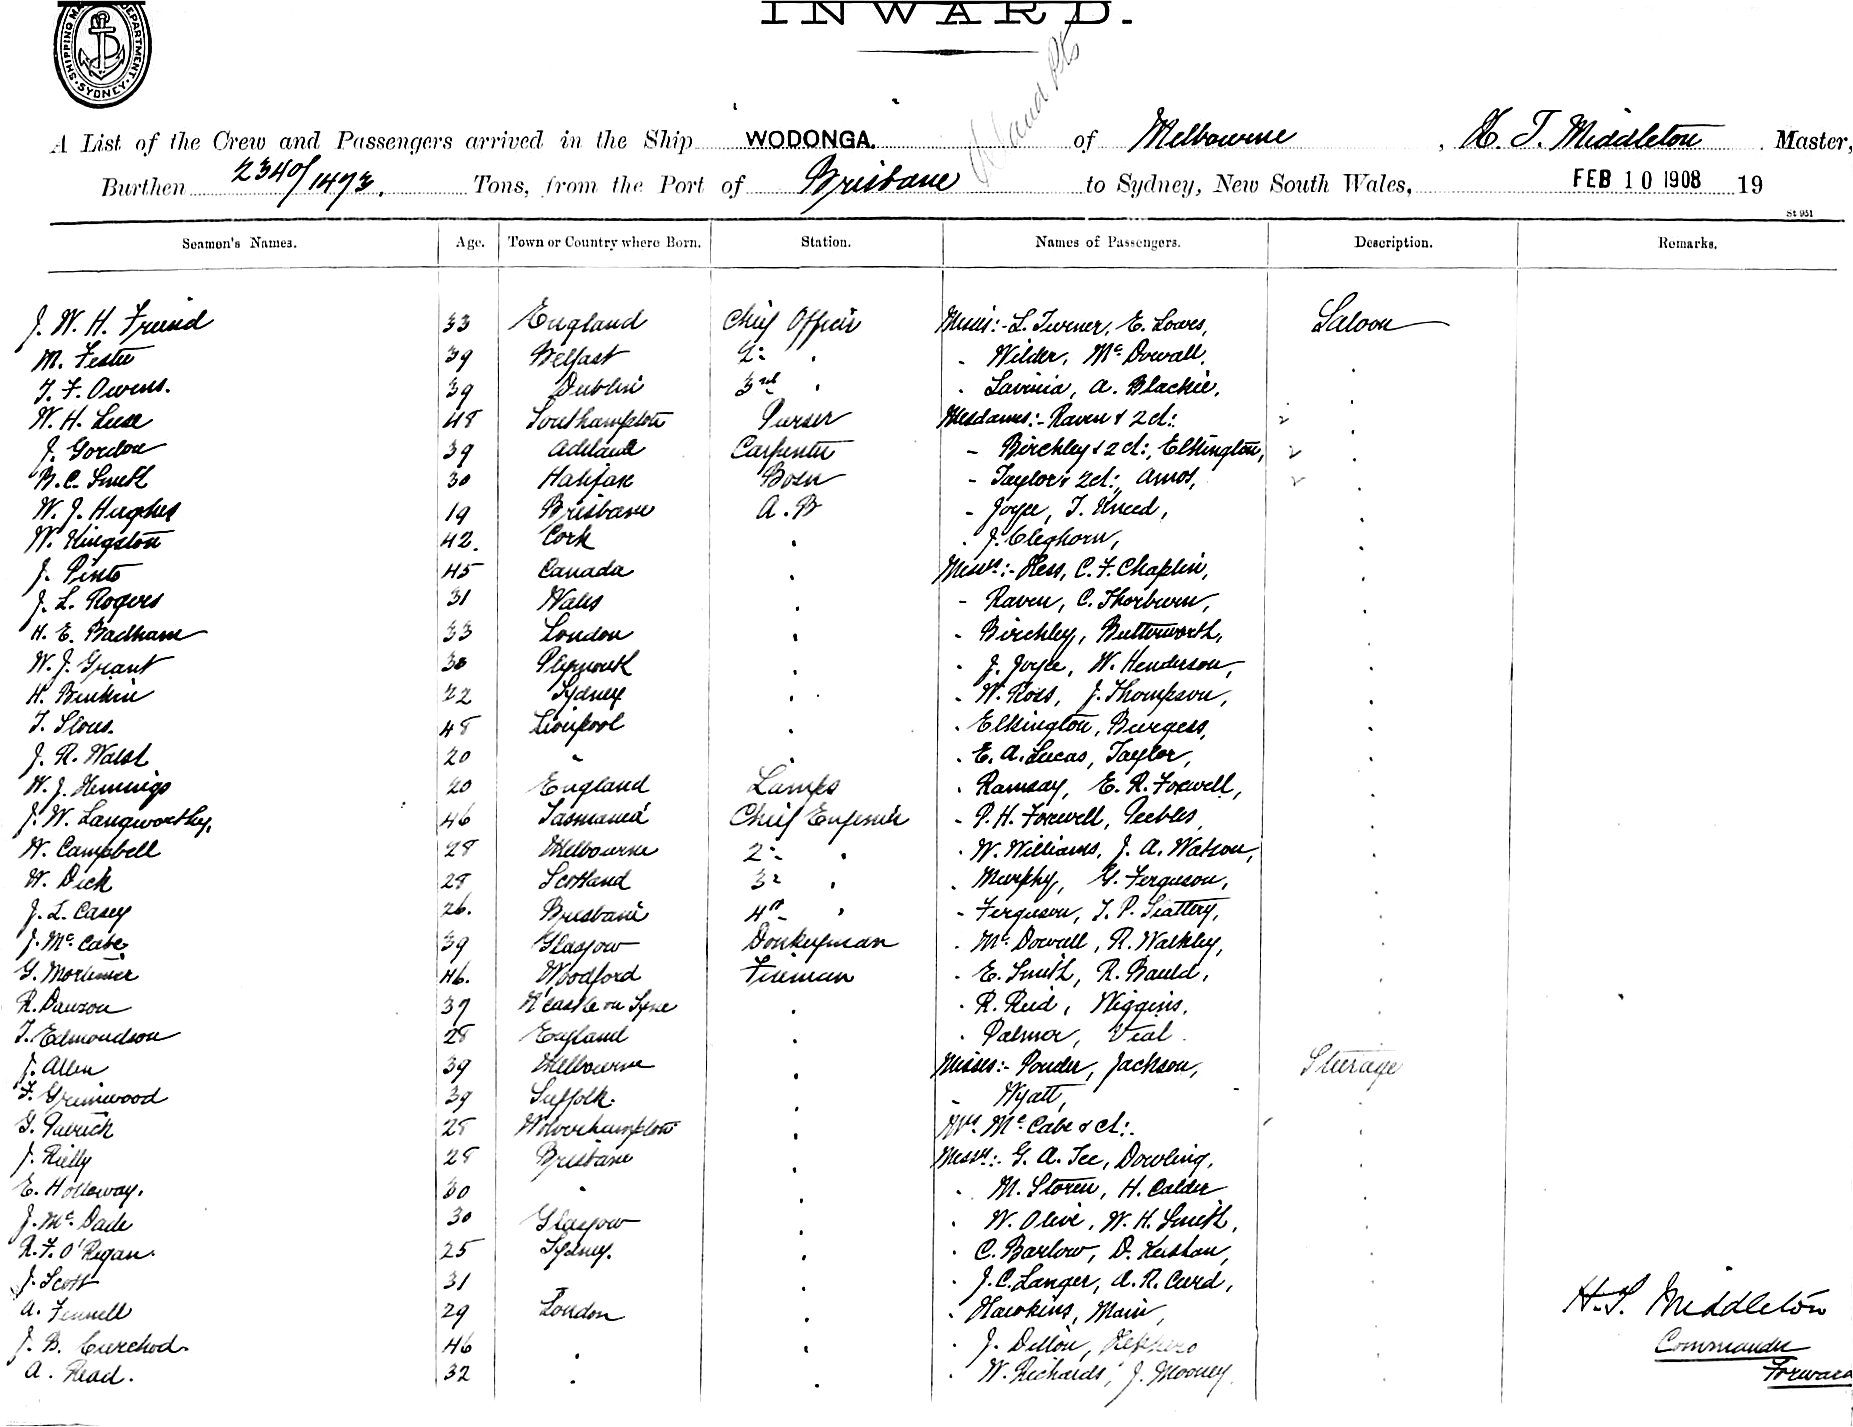 INWARD.
SHIPPING MA DEPARTMENT. SYDNEY.
A List of the Crew and Passengers arrived in the Ship WODONGA. of Melbourne, H. T. Middleton Master,
Burthen 2340/1473. Tons, from the Port of Brisbane to Sydney, New South Wales, FEB 10 1908 19
St 951
Seamen's Names. Age. Town or Country where Born. Station. Names of Passengers. Description. Remarks.
J. W. H. Freind 33 England Chief Officer Misses:- L. Turner, E. Lowes, Saloon
M. Lester 39 Belfast 2: . - Wilder, Mc Dowall,
T. F. Owens. 39 Dublin 3rd . . Lavinia, A. Blackie,
W. H. Luse 48 Southampton Purser Mesdames:- Raven & 2 ch:
J. Gordon 39 Adelaide Carpenter - Birchley & 2 ch:, Elkington,
B. C. Smith 30 Halifax Bosn - Taylor & 2 ch:, Amos,
W. J. Hughes 19 Brisbane A.B - Joyce, T. Kneed,
W. Kingston 42. Cork . . J. Cleghorn,
J. Pinto 45 Canada . Messrs:- Hess, C. F. Chaplin,
J. L. Rogers 31 Wales . - Raven, C. Thorburn,
H. E. Badham 33 London . - Birchley, Butterworth,
W. J. Grant 30 Plymouth . . J. Joyce, W. Henderson,
H. Binkin 22 Sydney . . W. Ross, J. Thompson,
T. Slous. 48 Liverpool . . Elkington, Burgess,
J. R. Walsh 20 " . E. A. Lucas, Taylor,
W. J. Hemings 20 England Lamps . Ramsay, E. R. Foxwell,
J. W. Langworthy. 46 Tasmania Chief Engineer - P. H. Foxwell, Peebles,
W. Campbell 28 Melbourne 2: . . W. Williams, J. A. Watson,
W. Dick 28 Scotland 3: . . Murphy, G. Ferguson,
J. L. Casey 26. Brisbane 4th . - Ferguson, T. P. Slattery,
J. Mc Cabe 39 Glasgow Donkeyman . Mc Dowall, R. Walkley,
G. Mortimer 46. Woodford Fireman . E. Smith, R. Bauld,
R. Dawson 37 N'castle on Tyne . . R. Reid, Wiggins,
T. Edmondson 28 England . . Palmer, Vial.
J. Allen 39 Melbourne . Misses:- Ponder, Jackson, Steerage
F. Grimwood 39 Suffolk. . - Wyatt,
G. Patrick 28 Wolverhampton . Mrs. Mc Cabe & ch:.
J. Rielly 28 Brisbane . Messrs:- G. A. Tee, Dowling,
E. Holloway. 30 . . . M. Storen, H. Calder
J. Mc Dade 30 Glasgow . . W. Olive, W. H. Smith,
R. F. O'Regan. 25 Sydney. . . C. Barlow, D. Kershaw,
J. Scott 31 . . J. C. Langer, A. R. Curd,
A. Fennell 29 London . . Hawkins, Main,
J. B. Curchod. 46 . . . J. Dillon,
A. Read. 32 . . . W. Richards, J. Mooney.
H. T. Middleton
Commander
Forward